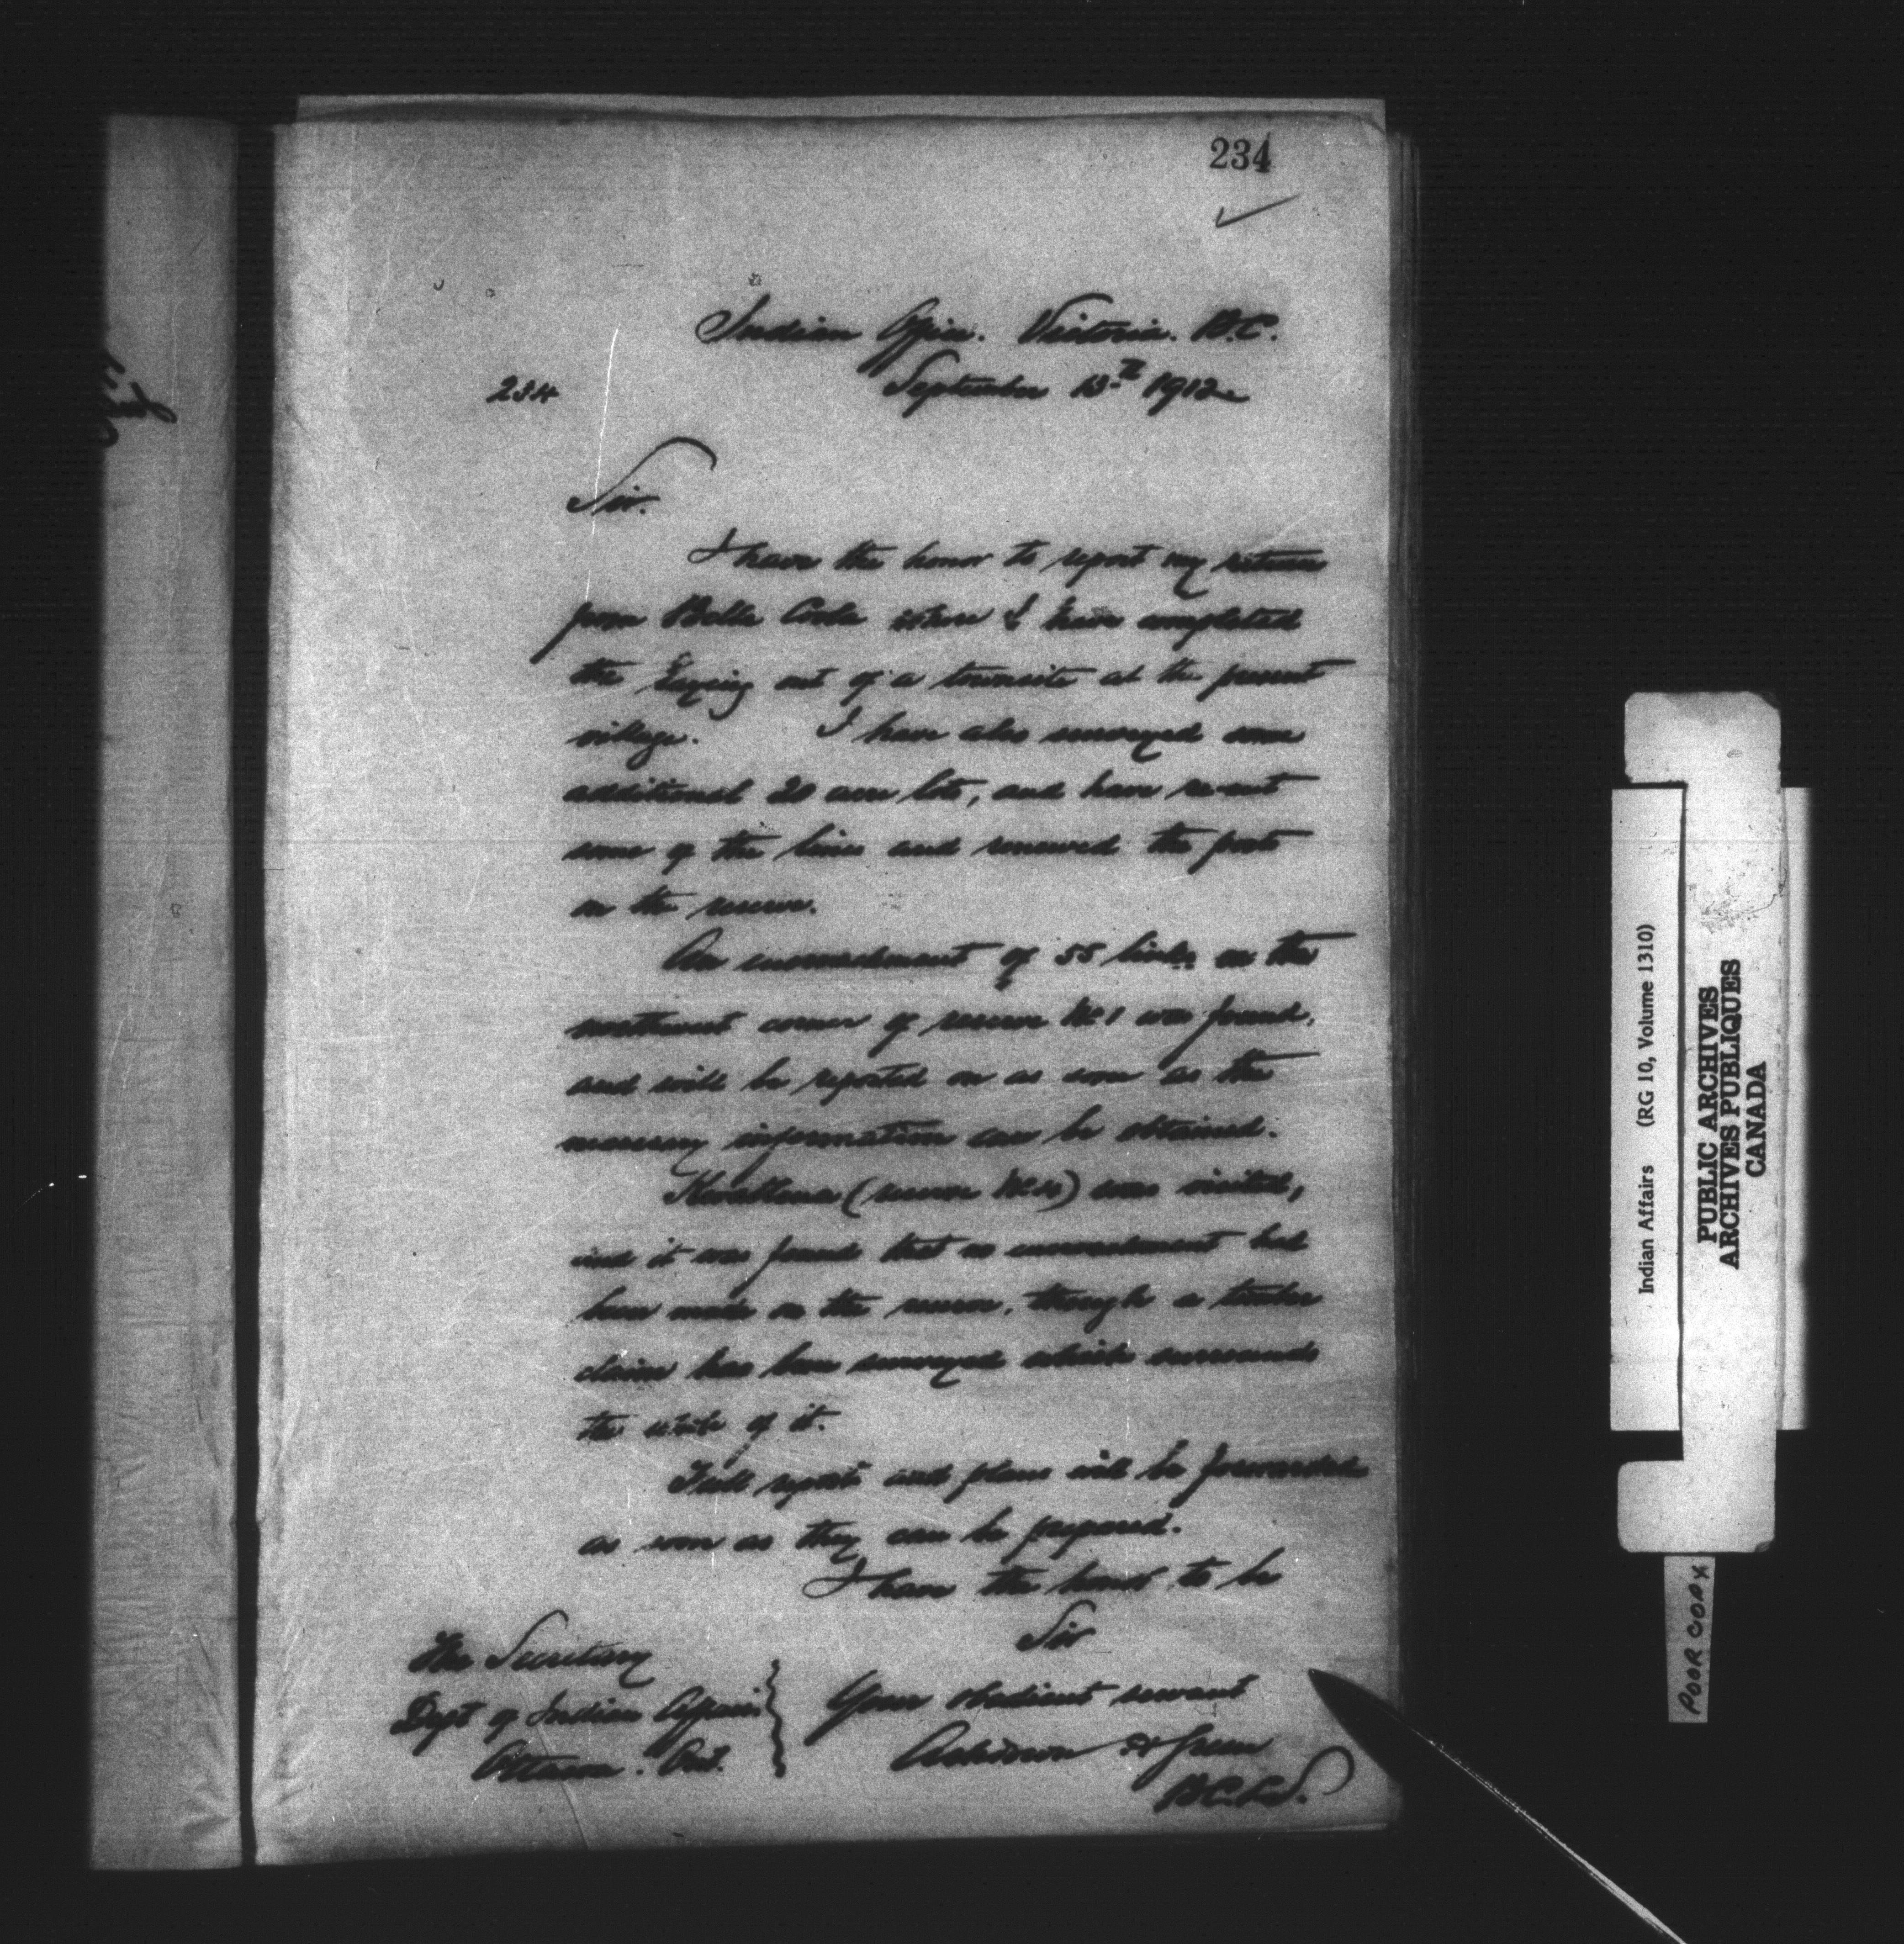 234
Indian Office. Victoria. B.C.
234 September 13th 1912
Sir.
I have the honor to report my return
from Bella Coola where I have completed
the laying out of a townsite at the present
village. I have also surveyed some
additional 20 acre lots, and have re-cut
some of the lines and renewed the posts
on the reserve.
An encroachment of 55 links on the
northwest corner of reserve No 1 was found,
and will be reported on as soon as the
necessary information can be obtained.
(reserve No 4) was visited,
and it was found that no encroachment had
been made on the reserve, though a timber
claim has been surveyed which surrounds
the whole of it.
Full report and plans will be forwarded
as soon as they can be prepared.
I have the honor to be
Sir
Your obedient servant
Ashdown H Green
B.C.L.S.
The Secretary
Dept of Indian Affairs
Ottawa. Ont.
Indian Affairs (RG 10, Volume 1310)
PUBLIC ARCHIVES
ARCHIVES PUBLIQUES
CANADA
POOR COPY